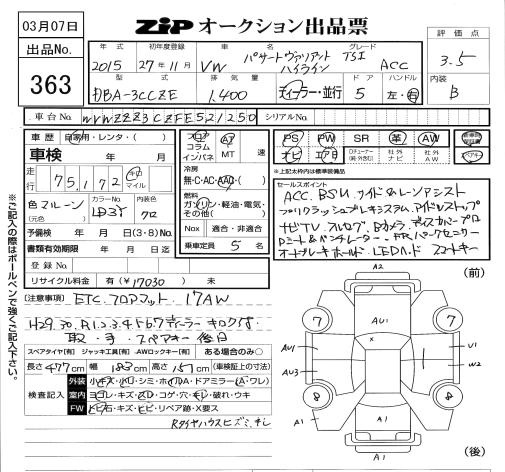 03月07日
ZIP オークション出品票
出品No.
363
年式 初年度登録 車名 グレード
2015 27年11月 VW パサートヴァリアント TSI ハイライン ACC
型式 排気量 ドア ハンドル
DBA-3CCZE 1,400 ディーラー・並行 5 左・右
評価点
3.5
内装
B
車台No. WVWZZZ3CZFE521250 シリアルNo.
車歴 自家用・レンタ・( )
車検 年 月
走行 75,172 キロ マイル
色 マルーン (元色) カラーNo. LD3Y 内装色 クロ
予備検 年 月 日(3・8)No.
書類有効期限 年 月 日迄
登録No.
リサイクル料金 有(¥17030) 未
フロア コラム インパネ AT MT 速
冷房 無・C・AC・AAC・( )
燃料 ガソリン・軽油・電気・その他( )
Nox 適合・非適合
乗車定員 5 名
PS PW SR 革 AW
ナビ エアB Dチューナー(純・外含む) 社外ナビ 社外AW
標準保証書 スペアキー
※上記太枠内は標準装備品
セールスポイント
ACC. BSM. サイド&レーンアシスト
プリクラッシュブレーキシステム. アイドルストップ
ナビTV. フルセグ. Bカメラ. ディスカバープロ
Dシート&ベンチレーター. FRパークセンサー
オートブレーキホールド. LEDハイド スマートキー
[注意事項] ETC. フロアマット. 17AW
H29. 30. R1. 2. 3. 4. 5. 6. 7 ディーラーキロク付.
取・手・スペアキー 後日
スペアタイヤ[有] ジャッキ工具[有] ・AWロックキー[有] ある場合のみ○
長さ477cm 幅183cm 高さ151cm (車検証上の寸法)
検査記入
外装 小キズ・小凹・シミ・ホイルA・ドアミラー(A・ワレ)
室内 ヨゴレ・キズ・スレ・コゲ・穴・キレ・破れ・ウキ
FW トビ石・キズ・ヒビ・リペア跡・X要ス
Rタイヤハウスヒズミ. チレ
※ご記入の際はボールペンで強くご記入下さい。
(前)
A2
AU1
7
7
x
AU1
AU3
U1
W2
1
8
8
A1
A1
A1
(後)